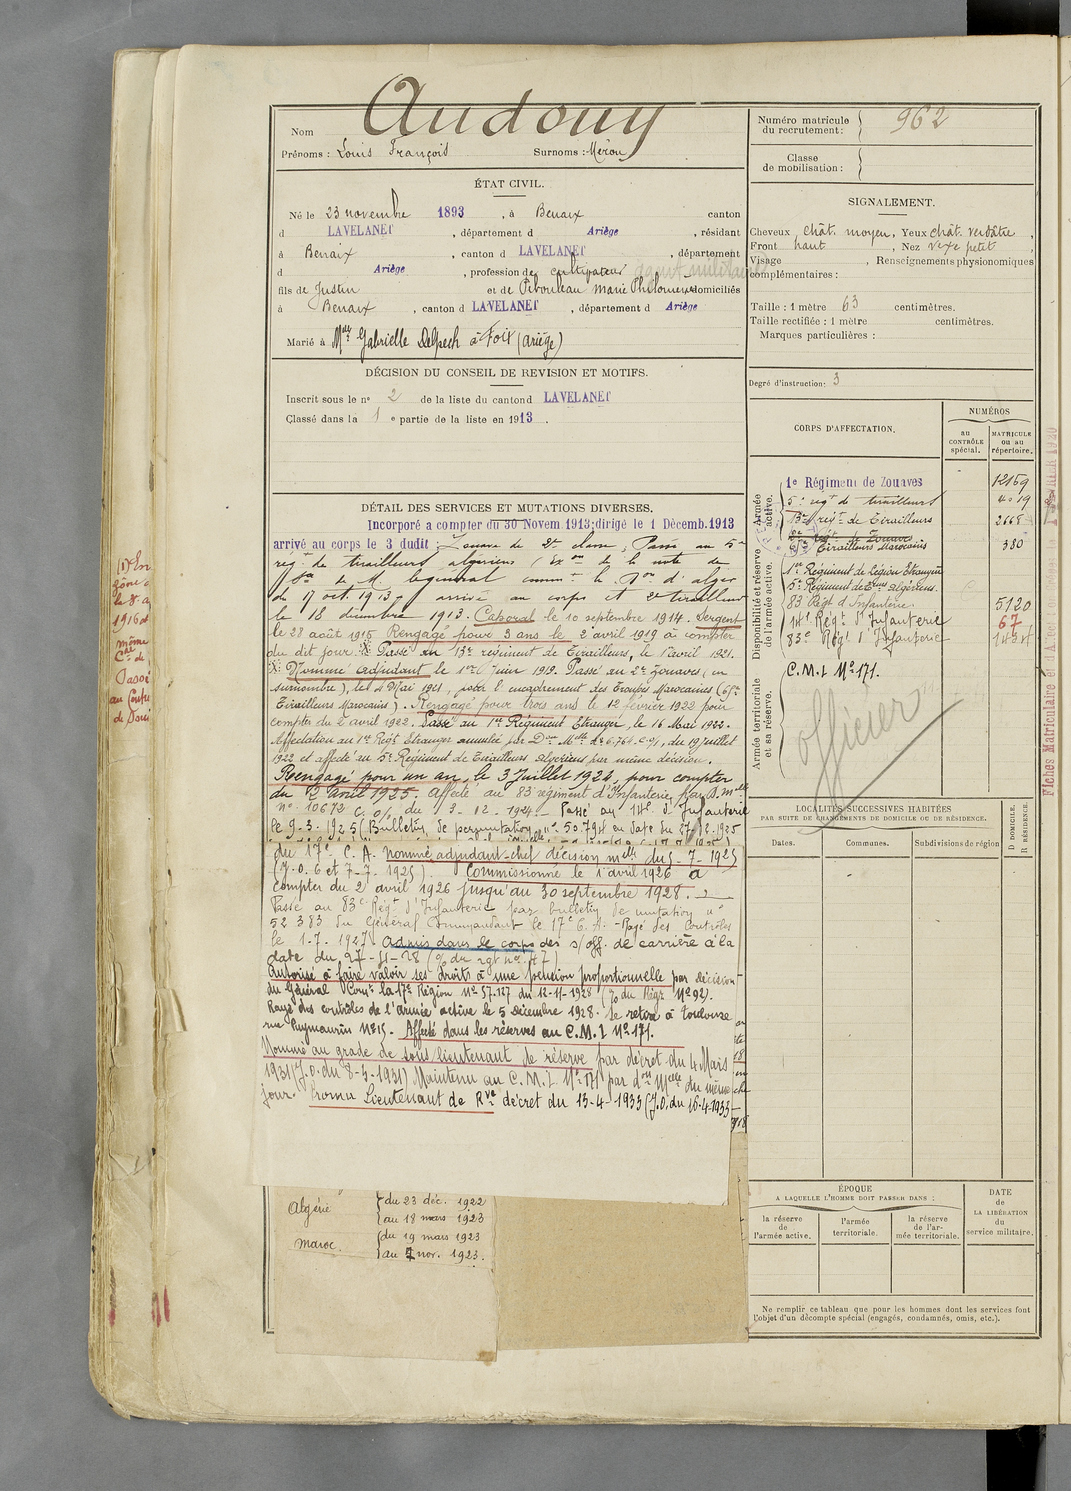 Nom Audouy
Prénoms : Louis François Surnoms : Méron
ÉTAT CIVIL.
Né le 23 novembre 1893, à Benaix canton
d LAVELANET, département d Ariège, résidant
à Benaix, canton d LAVELANET, département
d Ariège, profession de cultivateur
fils de Justin et de Marie Philomène domiciliés
à Benaix, canton d LAVELANET, département d Ariège
Marié à Melle Gabrielle Delpech à Foix (ariège)
DÉCISION DU CONSEIL DE REVISION ET MOTIFS.
Inscrit sous le no 2 de la liste du canton d LAVELANET
Classé dans la 1 e partie de la liste en 1913.
DÉTAIL DES SERVICES ET MUTATIONS DIVERSES.
Incorporé a compter du 30 Novem. 1913; dirigé le 1 Décemb. 1913
arrivé au corps le 3 dudit : Zouave de 2e classe, Passé au 5e
régt de tirailleurs algériens (Exon de la note de
M. le général commt la Don d'alger
du 17 oct. 1913, arrivé au corps et 2e tirailleur
le 18 décembre 1913. Caporal le 10 septembre 1914. Sergent
le 28 août 1915 Rengagé pour 3 ans le 2 avril 1919 à compter
du dit jour. Passé au 13e régiment de Tirailleurs, le 1 avril 1921.
Nommé adjudant le 1er Juin 1919. Passé au 2e Zouaves (en
surnombre), le 4 Mai 1921, pour l'encadrement des Troupes Marocaines
Tirailleurs Marocains). Rengagé pour trois ans le 12 février 1922 pour
compter du 2 avril 1922. Passé au 1er Régiment Etranger, le 16 Mai 1922.
Affectation au 1er Régt Etranger annulée par Don Melle No 6.764. C. 0/1, du 19 Juillet
1922 et affecté au 5e Régiment de Tirailleurs Algériens par même décision.
Rengagé pour un an, le 3 Juillet 1924, pour compter
du 12 avril 1925. Affecté au 83 régiment d'Infanterie par D. Melle
no 10672 du 3-12-1924. Passé au 14e d'Infanterie
le 9-3-1925 (Bulletin de permutation no 50.794 en date du 27-2-1925
du 17e C. A. nommé adjudant-chef décision melle du 5-7-1925
(J.O. 6 et 7-7-1925). Commissionné le 1 avril 1926 à
compter du 2 avril 1926 jusqu'au 30 septembre 1928.
Passé au 83e Régt d'Infanterie par bulletin de mutation no
52383 du Général Commandant le 17e C. A. Rayé des contrôles
le 1-7-1927. Admis dans le corps des s/off. de carrière à la
date du 27-11-28
Autorisé à faire valoir ses droits à une pension proportionnelle par décision
du Général Comt la 17e Région No 57.127 du 12-11-1928 No 92).
Rayé des contrôles de l'armée active le 5 Décembre 1928. Se retire à Toulouse
rue Puymaurin No 15. Affecté dans les réserves au C.M.I No 171.
Nommé au grade de sous/lieutenant de réserve par décret du 4 Mars
1931 (J.O. du 8-3-1931) Maintenu au C.M.I. No 171 par don Melle du même
jour. Promu Lieutenant de Rve décret du 13-4-1933 (J.O. du 16-4-1933
Algérie du 23 déc. 1922
au 18 mars 1923
Maroc. du 19 mars 1923
au 7 nov. 1923.
Numéro matricule du recrutement : 962
Classe de mobilisation :
SIGNALEMENT.
Cheveux chât. moyen, Yeux chât. verdâtre,
Front haut, Nez vexe petit,
Visage, Renseignements physionomiques
complémentaires :
Taille : 1 mètre 63 centimètres.
Taille rectifiée : 1 mètre centimètres.
Marques particulières :
Degré d'instruction : 3
CORPS D'AFFECTATION.
NUMÉROS
AU CONTRÔLE spécial.
MATRICULE ou au répertoire.
Armée active.
Disponibilité et réserve de l'armée active.
Armée territoriale et sa réserve.
1e Régiment de Zouaves 12159
5e régt de tirailleurs 4019
13e régt de Tirailleurs 2668
2e régt de Zouaves
Tirailleurs Marocains 380
1er Régiment de Légion Etrangère
5e Régiment de Algériens.
83 Régt d'Infanterie 5120
14e Régt d'Infanterie 67
83e Régt d'Infanterie 1434
C.M.I No 171.
officier
LOCALITÉS SUCCESSIVES HABITÉES
PAR SUITE DE CHANGEMENTS DE DOMICILE OU DE RÉSIDENCE.
Dates. Communes. Subdivisions de région
D DOMICILE.
R RÉSIDENCE.
ÉPOQUE
A LAQUELLE L'HOMME DOIT PASSER DANS :
la réserve de l'armée active.
l'armée territoriale.
la réserve de l'armée territoriale.
DATE de LA LIBÉRATION du service militaire.
Ne remplir ce tableau que pour les hommes dont les services font
l'objet d'un décompte spécial (engagés, condamnés, omis, etc.).